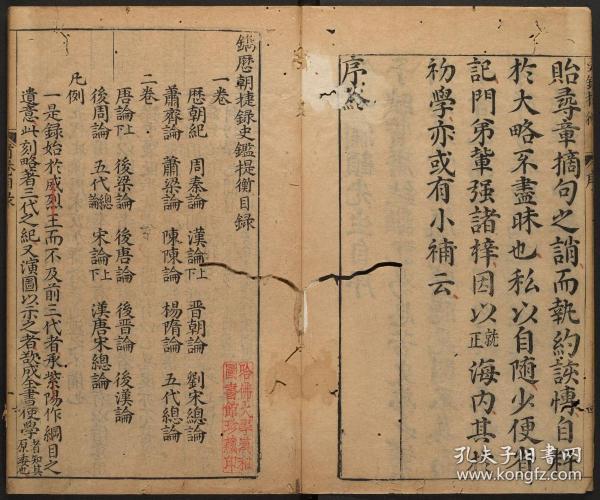 貽尋章摘句之誚而執約該博自料
於大略不盡昧也私以自随少便省
記門弟輩强諸梓因以就正海内其於
初學亦或有小補云
序終
鐫歷朝捷録史鑑提衡目録
一卷
歷朝紀 周秦論 漢論上下 晋朝論 劉宋總論
蕭齊論 蕭梁論 陳陳論 楊隋論 五代總論
二卷
唐論上下 後梁論 後唐論 後晋論 後漢論
後周論 五代總論 宋論上下 漢唐宋總論
凡例
一是録始於威烈王而不及前三代者承紫陽作綱目之
遺意此刻略著三代之紀又演圖以示之者欲成全書使學者知其原委也
哈佛大學漢和
圖書館珍藏印
孔夫子旧书网